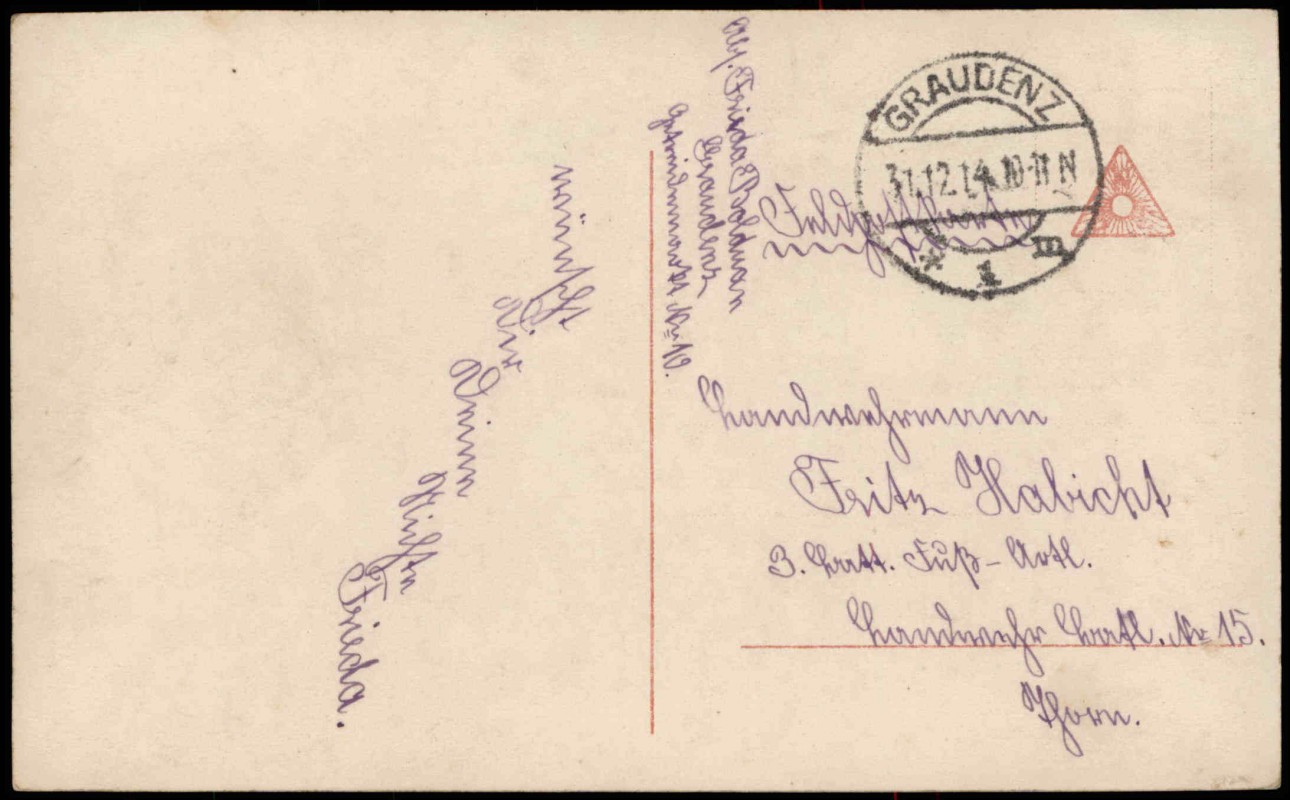 wünscht
Dir
Deine
Nichte
Frieda.
Abs. Frieda Boldman
Graudenz
Getreidemarkt Nr 10.
Feldpostkarte
GRAUDENZ
31.12.14. 10-11 N
* 1 m
Landwehrmann
Fritz Habicht
3. Batt. Fuß-Artl.
Landwehr Batl. Nr 15.
Thorn.